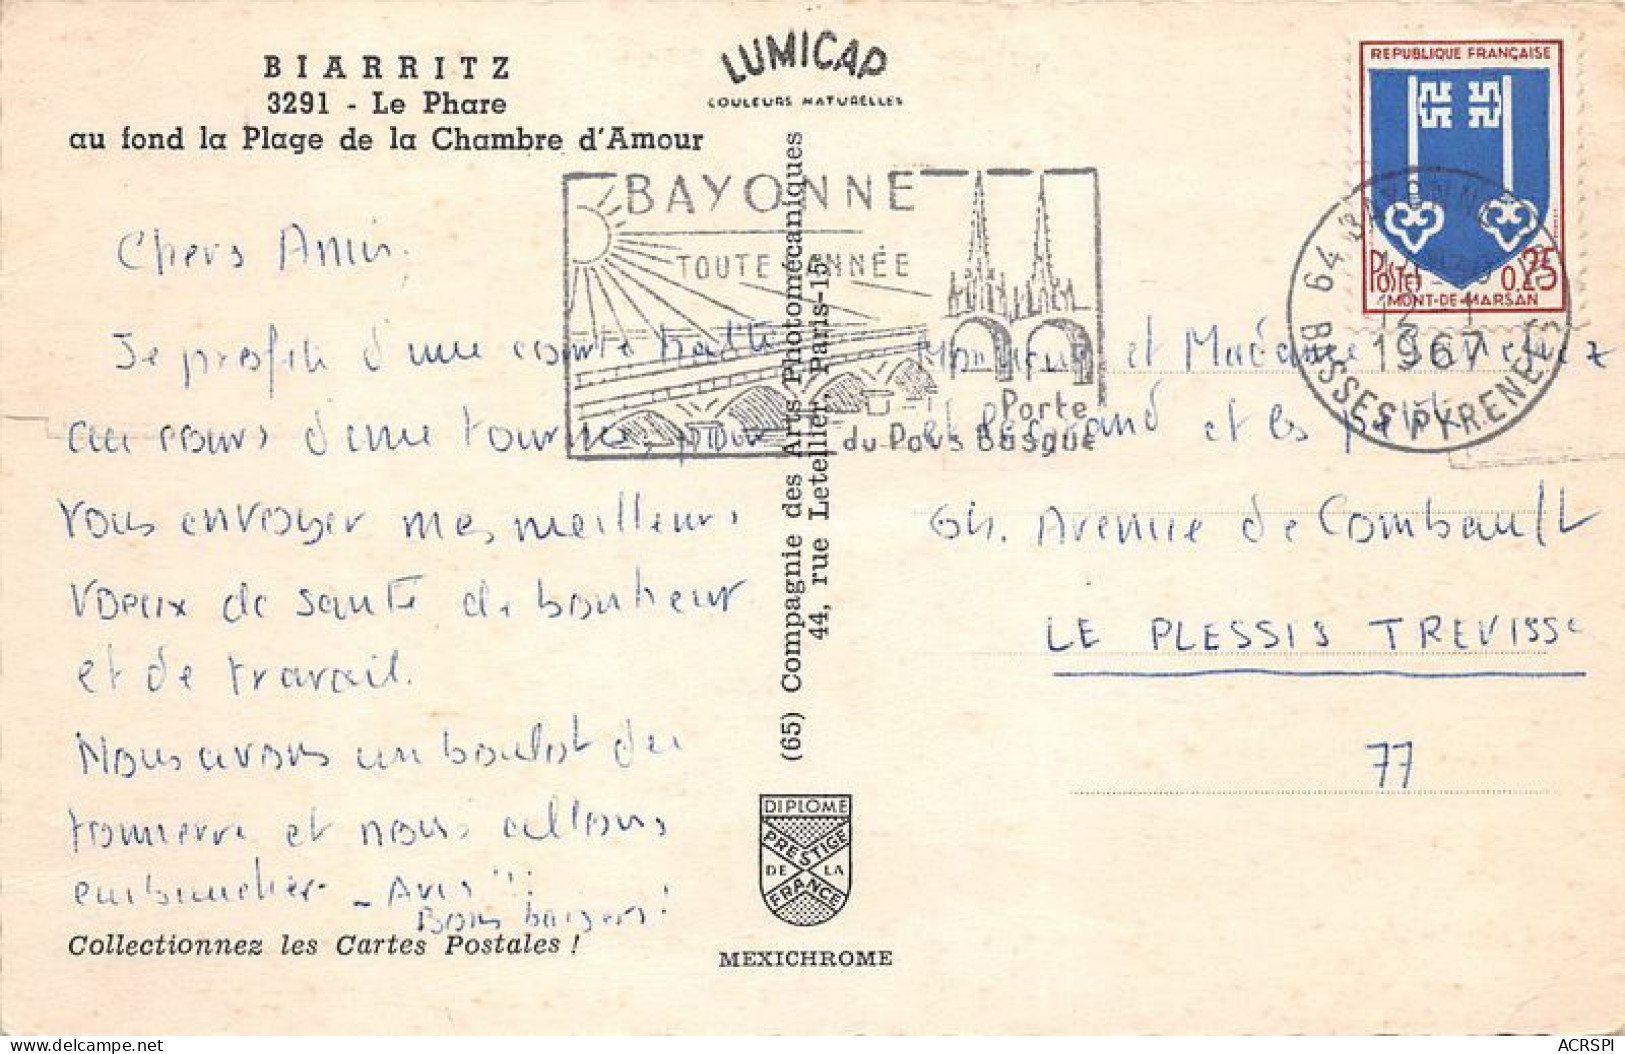 BIARRITZ
3291 - Le Phare
au fond la Plage de la Chambre d'Amour
LUMICAP
COULEURS NATURELLES
REPUBLIQUE FRANÇAISE
POSTES 0,25
MONT-DE-MARSAN
64 BAYONNE
12 - 1
1967
BASSES PYRENEES
BAYONNE
TOUTE L'ANNÉE
Porte
du Pays Basque
Chers Amis,
Je profite d'une courte halte
au cours d'une tournée, pour
vous envoyer mes meilleurs
voeux de santé de bonheur
et de travail.
Nous avons un boulot du
tonnerre et nous allons
embaucher - Avis !!!
Bons baisers !
Collectionnez les Cartes Postales !
(65) Compagnie des Arts Photomécaniques
44, rue Letellier, Paris-15
DIPLOME
PRESTIGE
DE LA
FRANCE
MEXICHROME
Monsieur et Madame
et le grand et les petits
64. Avenue de Combault
LE PLESSIS TREVISSE
77
ACRSPI
delcampe.net